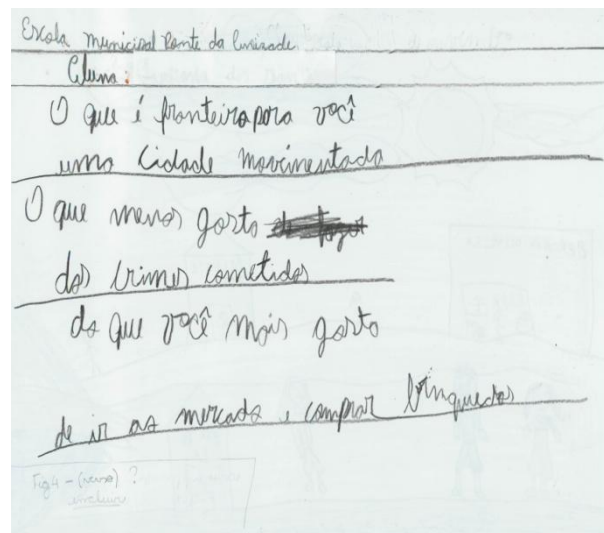 Escola Municipal Ponte da Amizade
Aluna:
O que é fronteira para você
uma cidade movimentada
O que menos gosto
dos crimes cometidos
do que você mais gosto
de ir ao mercado e comprar brinquedos
Fig 4 - (verso) ?
incluir